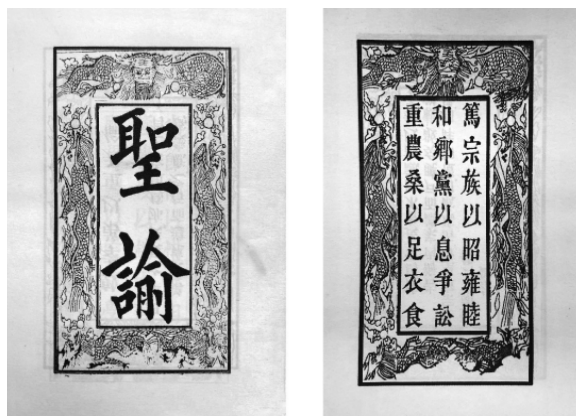 聖諭
篤宗族以昭雍睦
和鄉黨以息爭訟
重農桑以足衣食